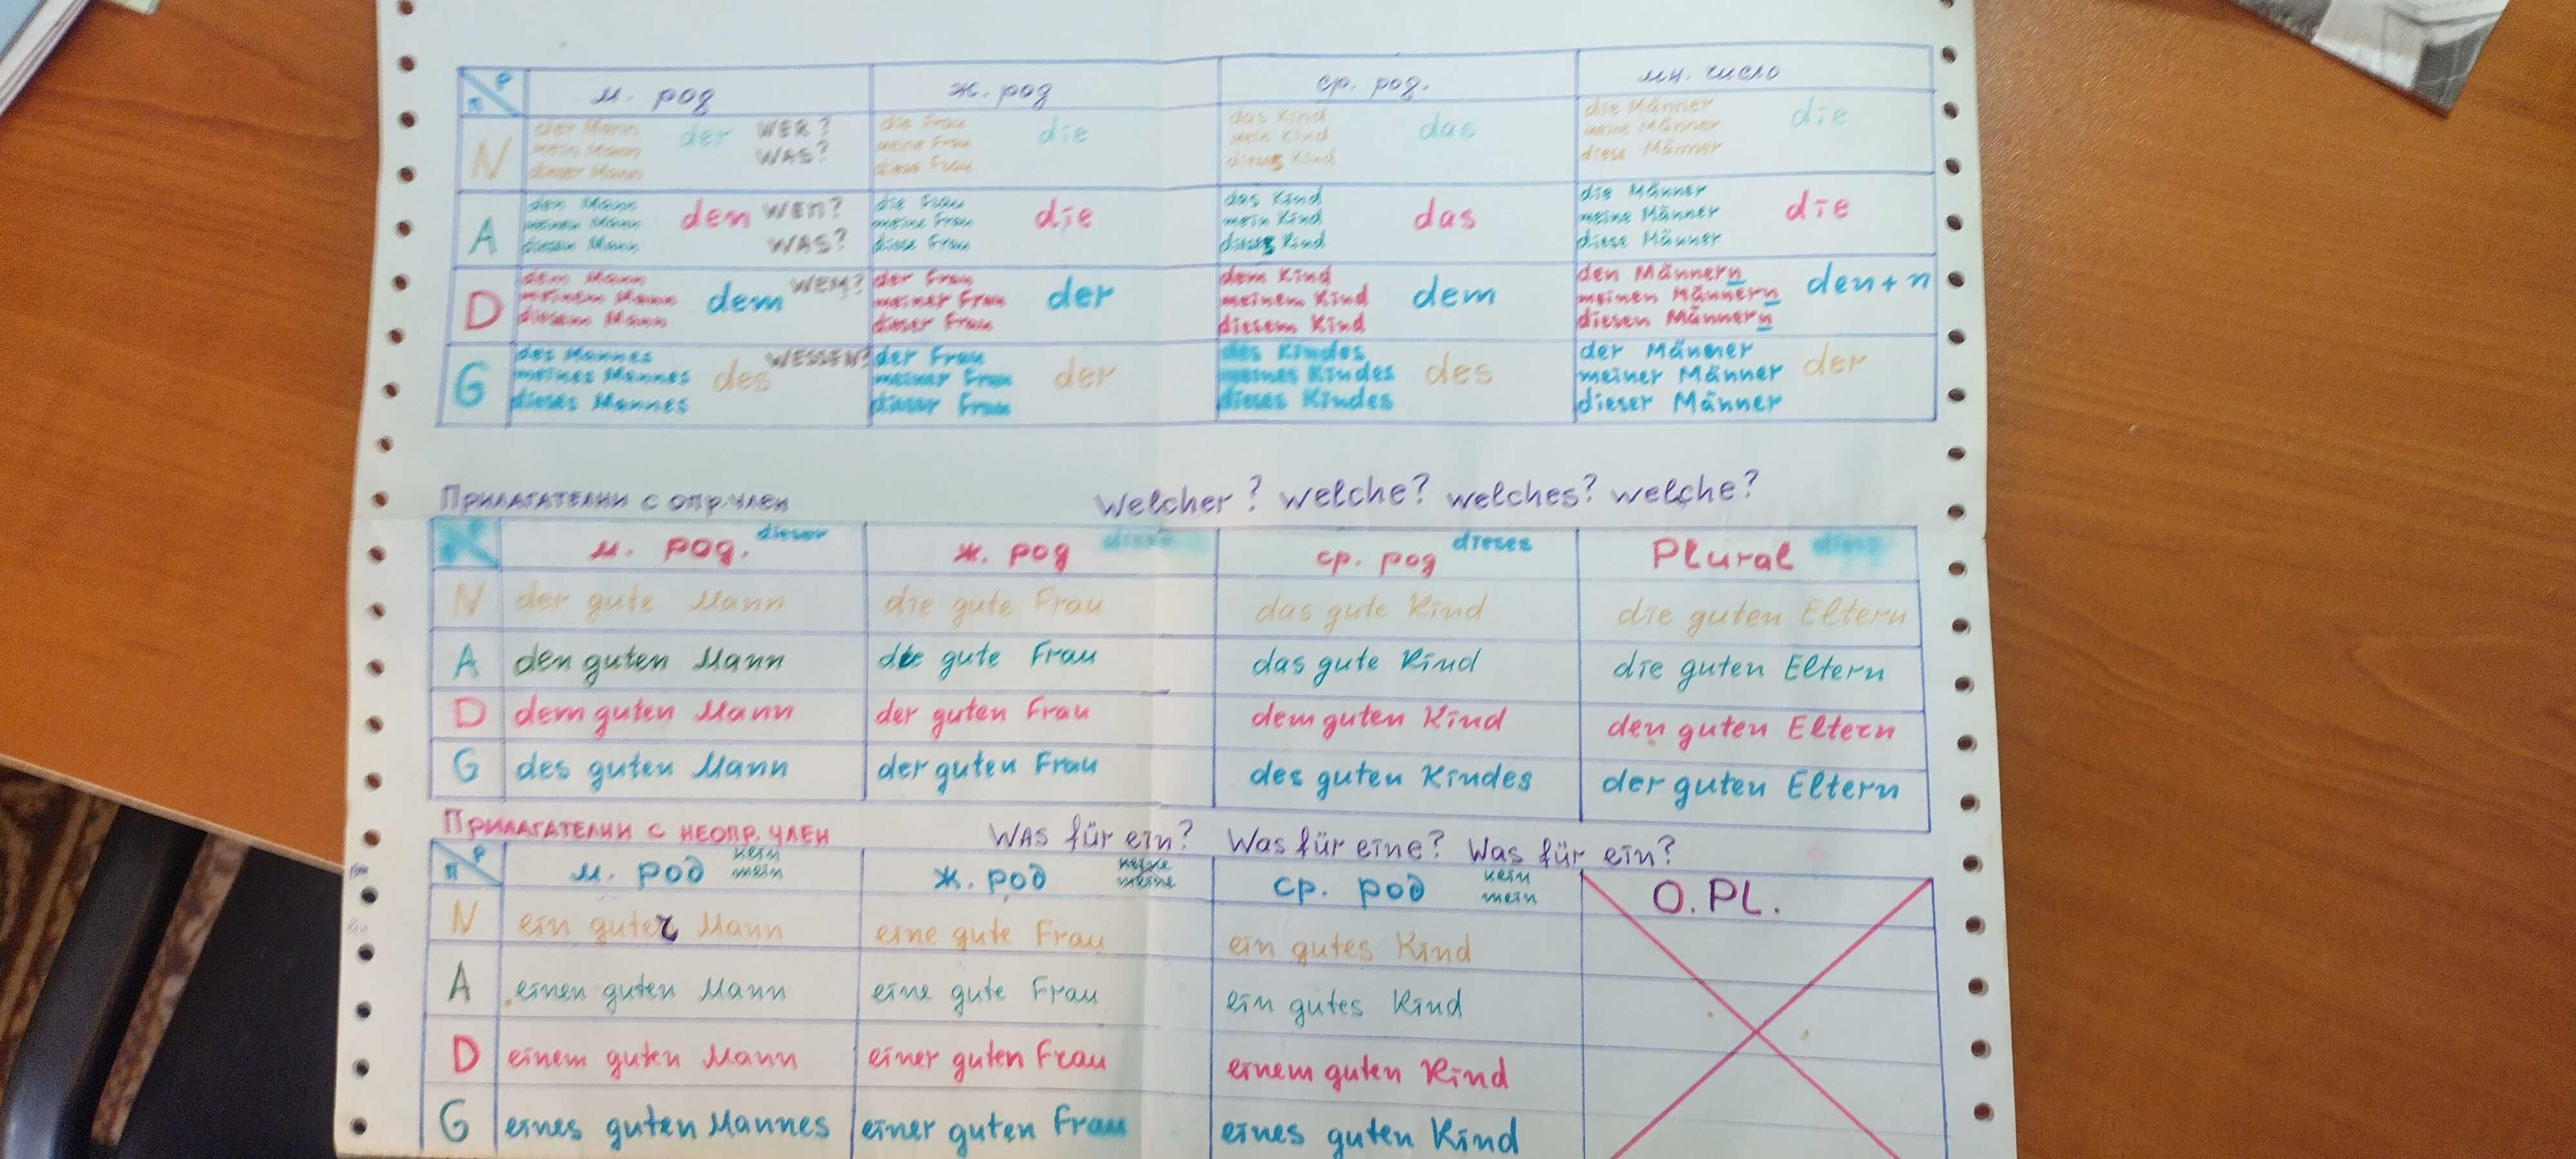 П Р м. род ж. род ср. род. мн. число
N der Mann mein Mann dieser Mann der WER? WAS? die Frau meine Frau diese Frau die das Kind mein Kind dieses Kind das die Männer meine Männer diese Männer die
A den Mann meinen Mann diesen Mann den WEN? WAS? die Frau meine Frau diese Frau die das Kind mein Kind dieses Kind das die Männer meine Männer diese Männer die
D dem Mann meinem Mann diesem Mann dem WEM? der Frau meiner Frau dieser Frau der dem Kind meinem Kind diesem Kind dem den Männern meinen Männern diesen Männern den + n
G des Mannes meines Mannes dieses Mannes des WESSEN? der Frau meiner Frau dieser Frau der des Kindes meines Kindes dieses Kindes des der Männer meiner Männer dieser Männer der
Прилагателни с опр. член Welcher? welche? welches? welche?
м. род. dieser ж. род diese ср. род dieses Plural diese
N der gute Mann die gute Frau das gute Kind die guten Eltern
A den guten Mann die gute Frau das gute Kind die guten Eltern
D dem guten Mann der guten Frau dem guten Kind den guten Eltern
G des guten Mann der guten Frau des guten Kindes der guten Eltern
Прилагателни с неопр. член Was für ein? Was für eine? Was für ein?
П Р м. род kein mein ж. род keine meine ср. род kein mein O.PL.
N ein guter Mann eine gute Frau ein gutes Kind
A einen guten Mann eine gute Frau ein gutes Kind
D einem guten Mann einer guten Frau einem guten Kind
G eines guten Mannes einer guten Frau eines guten Kind